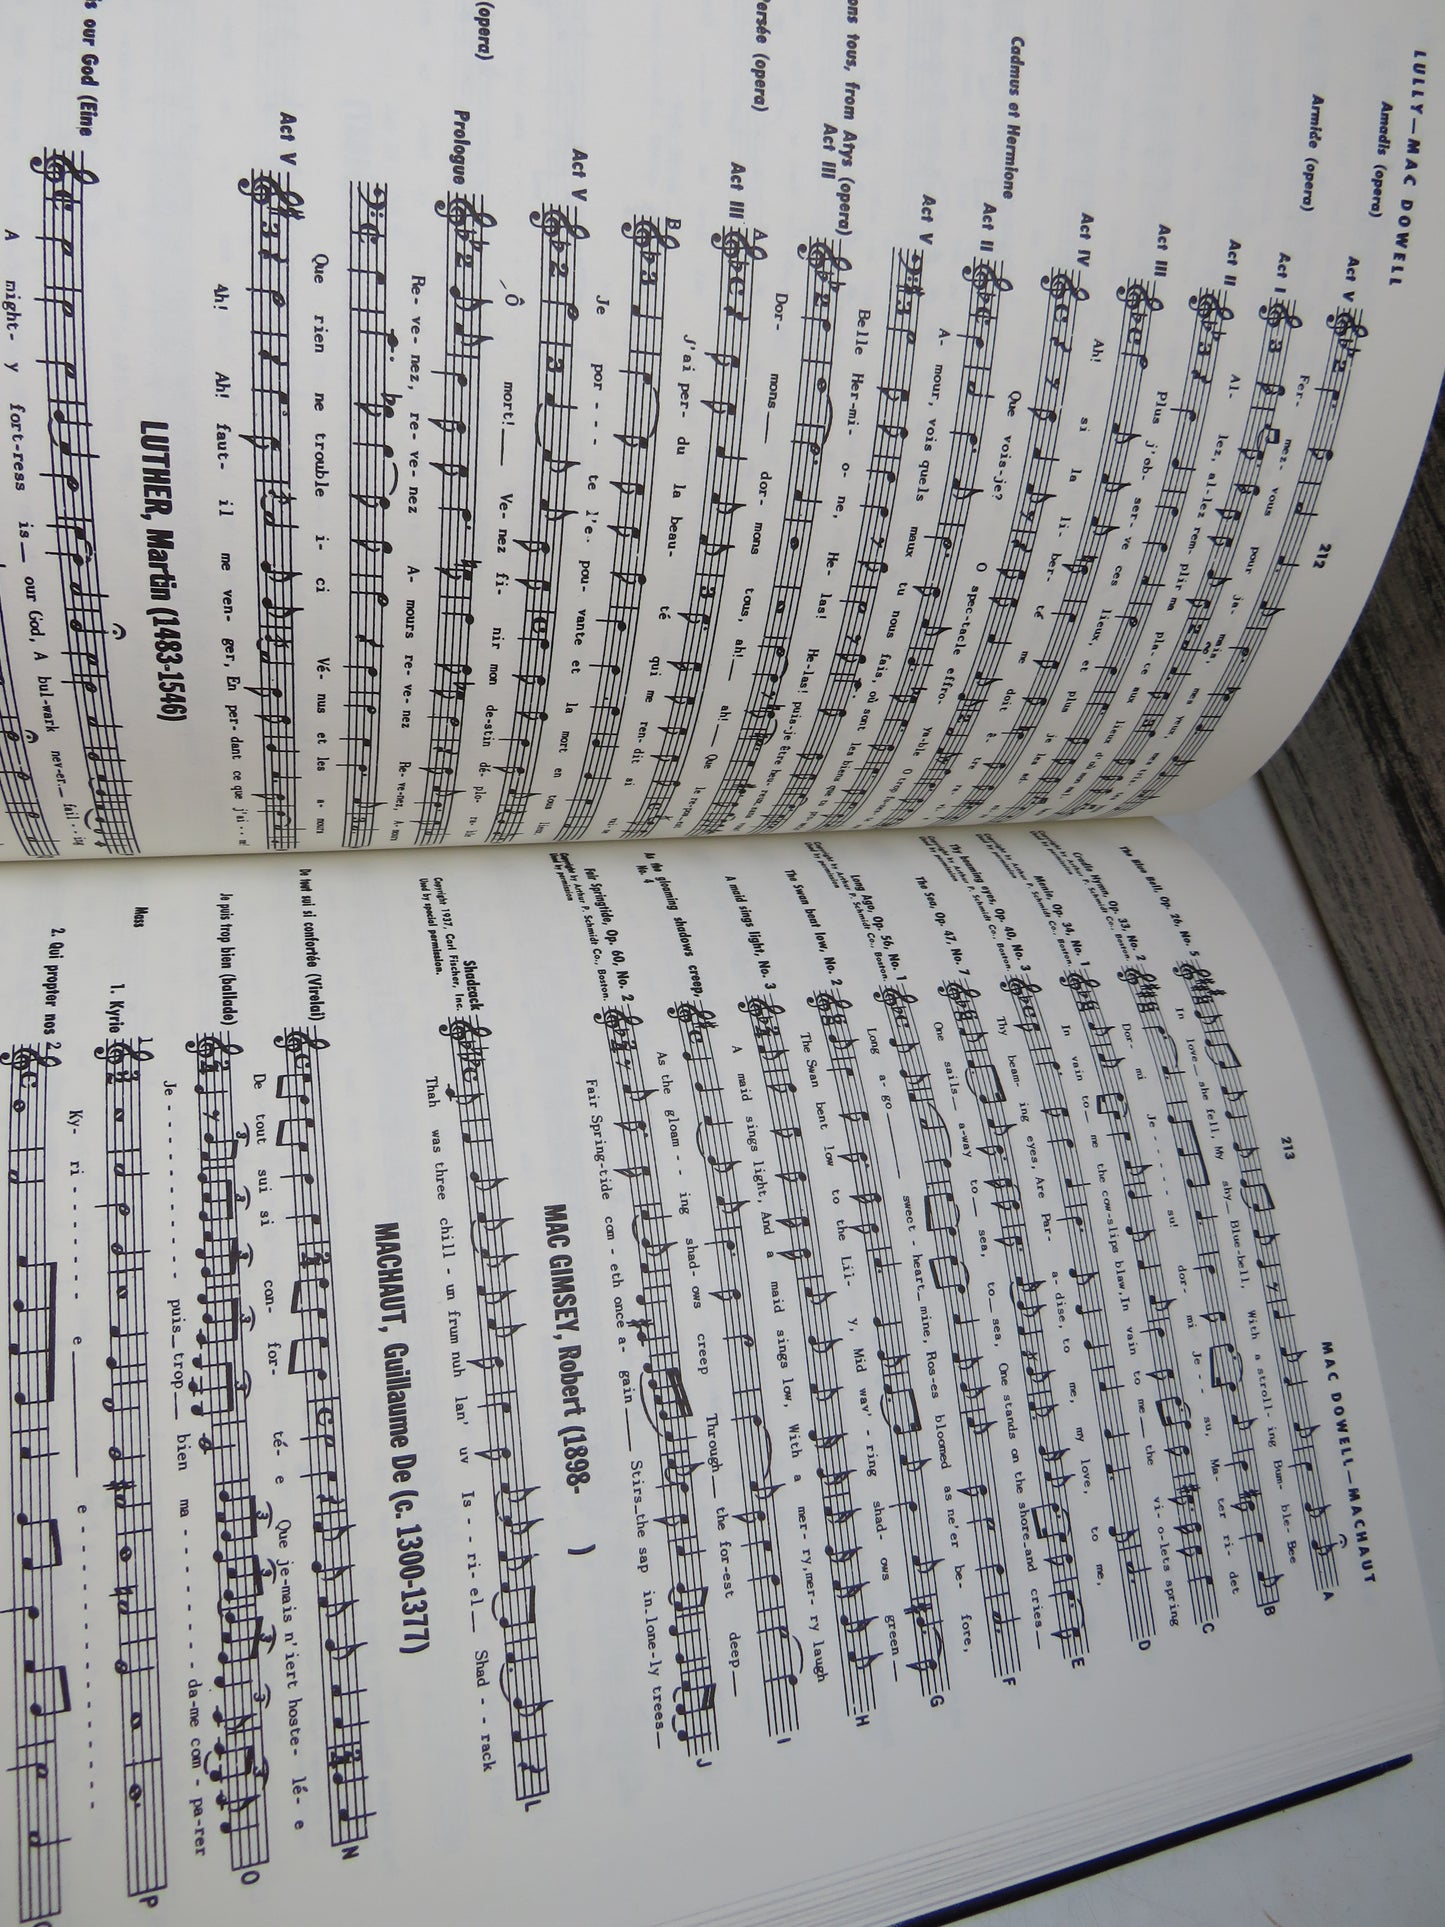 LULLY—MAC DOWELL
212
Amadis (opera)
Act V
Fer- mez- vous pour ja- mais,
Armide (opera)
Act I
Al- lez, al-lez rem- plir ma pla- ce aux lieux
Act II
Plus j'ob- ser- ve ces lieux, et plus je les
Act III
Ah! si la li- ber- té me doit ê- tre
Act IV
Que vois-je? O spec-tacle effro- ya-ble
Cadmus et Hermione
Act II
A- mour, vois quels maux tu nous fais, où sont les biens que tu
Act V
Belle Her-mi- o- ne, He- las! He-las! puis-je être heu-
ons tous, from Atys (opera)
Act III
Dor- mons dor- mons tous, ah! ah! Que
ersée (opera)
Act III
A
J'ai per- du la beau- té qui me ren- dit si
B
Je por - - - te l'e- pou- vante et la mort en tous lieux
Act V
Ô mort! Ve- nez fi- nir mon de-stin dé- plo- ra- ble
(opera)
Prologue
Re- ve- nez, re- ve- nez A- mours re- ve- nez Re- ve-nez, A-
Que rien ne trouble i- ci Vé- nus et les a-
Act V
Ah! Ah! faut- il me ven- ger, En per- dant ce que j'ai
LUTHER, Martin (1483-1546)
is our God (Eine
A might- y fort-ress is our God, A bul-wark nev-er fail
MAC DOWELL—MACHAUT
213
The Blue Bell, Op. 26, No. 5
A
In love she fell, My shy Blue-bell, With a stroll- ing Bum- ble- Bee
Cradle Hymn, Op. 33, No. 2
Copyright by Arthur P. Schmidt Co., Boston.
Used by permission
B
Dor- mi Je - - - - - su! dor- mi Je - - su, Ma- ter ri- det
C
Menie, Op. 34, No. 1
Copyright by Arthur P. Schmidt Co., Boston.
Used by permission
In vain to me the cow-slips blaw, In vain to me the vi-o-lets spring
D
Thy beaming eyes, Op. 40, No. 3
Copyright by Arthur P. Schmidt Co., Boston.
Used by permission
Thy beam- ing eyes, Are Par- a- dise, to me, my love, to me,
E
The Sea, Op. 47, No. 7
One sails a-way to sea, to sea, One stands on the shore and cries
F
Long Ago, Op. 56, No. 1
Copyright by Arthur P. Schmidt Co., Boston.
Used by permission
Long a- go sweet - heart mine, Ros-es bloomed as ne'er be- fore,
G
The Swan bent low, No. 2
The Swan bent low to the Lil- y, Mid wav' - ring shad- ows green
H
A maid sings light, No. 3
A maid sings light, And a maid sings low, With a mer- ry, mer- ry laugh
I
As the gloaming shadows creep,
No. 4
As the gloam - - ing shad- ows creep Through the for-est deep
J
Fair Springtide, Op. 60, No. 2
Copyright by Arthur P. Schmidt Co., Boston.
Used by permission
Fair Spring-tide com - eth once a- gain Stirs the sap in lone-ly trees
MAC GIMSEY, Robert (1898- )
Shadrack
Copyright 1937, Carl Fischer, Inc.
Used by special permission.
L
Thah was three chill - un frum nuh lan' uv Is - - ri- el Shad - - rack
MACHAUT, Guillaume De (c. 1300-1377)
De tout sui si confortée (Virelai)
N
De tout sui si con- for- té- e Que je-mais n'iert hoste- lé- e
Je puis trop bien (ballade)
O
Je - - - - - - - - - - puis trop bien ma - - - - - - - - da-me com - pa-rer
Mass
1. Kyrie 1
P
Ky- ri - - - - - - e e - - - - - - - - - -
2. Qui propter nos 2